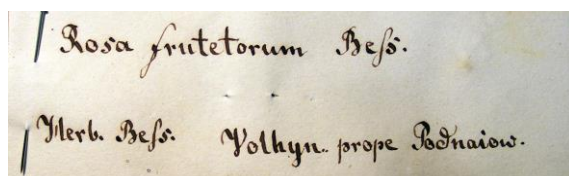 Rosa frutetorum Bess.
Herb. Bess. Volhyn. prope Podnaiow.